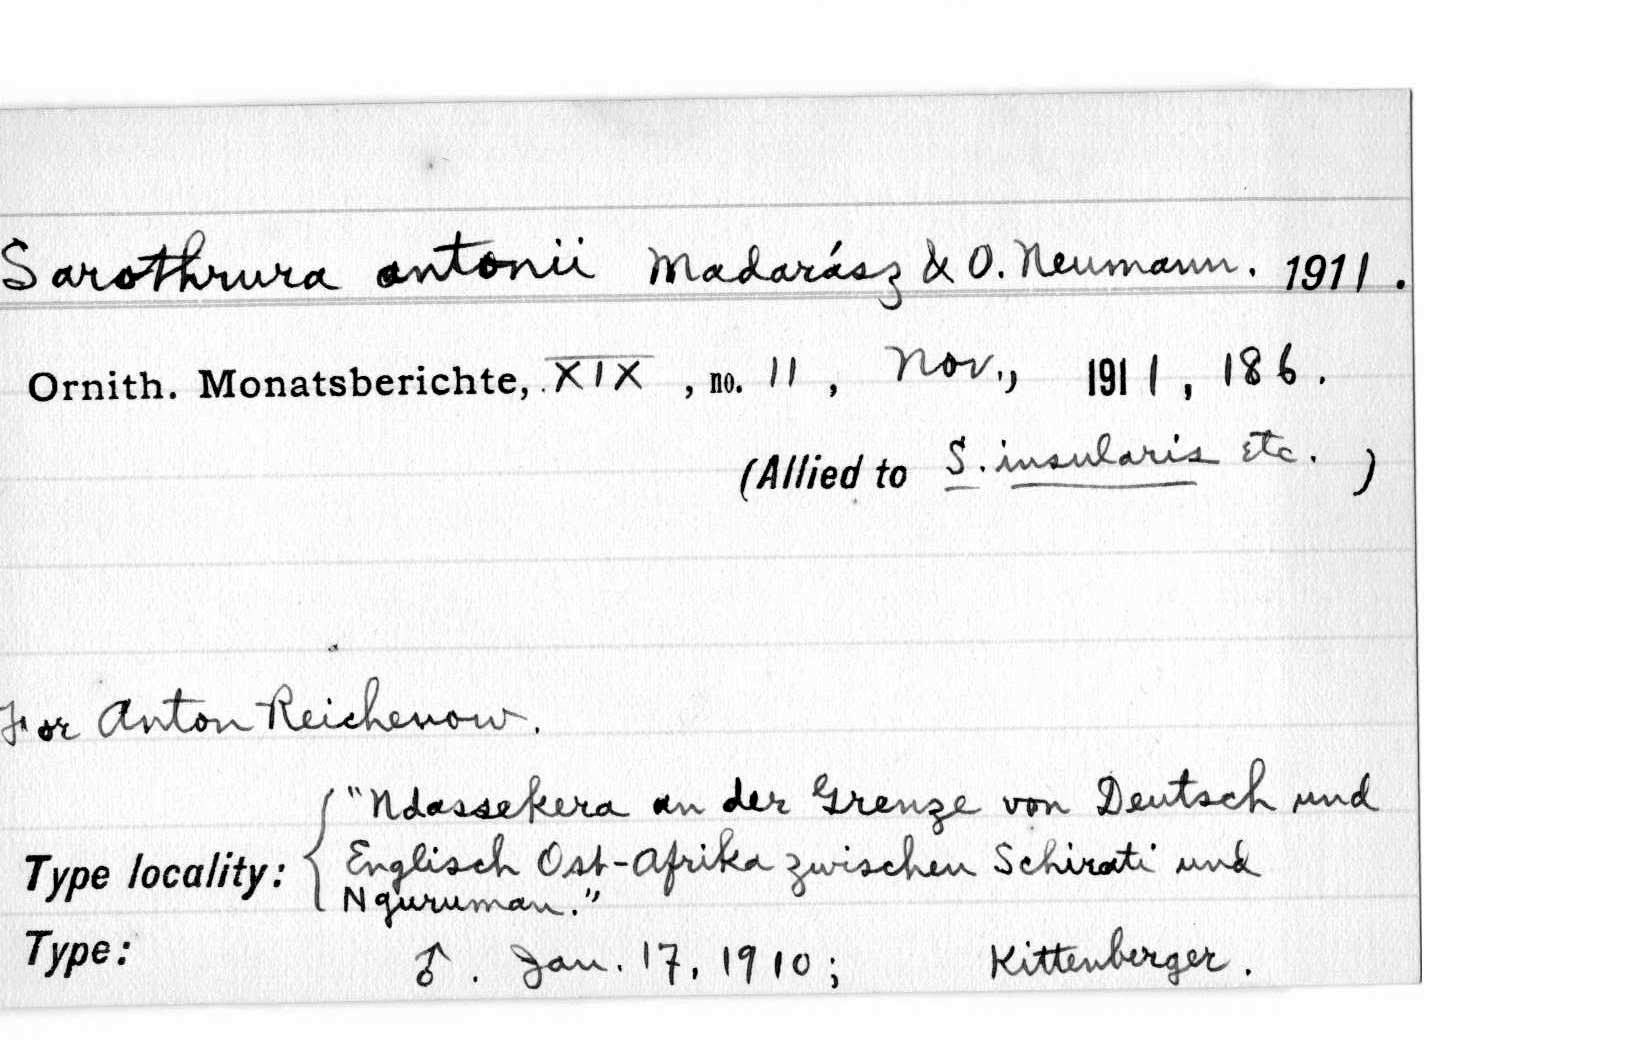 Sarothrura antonii Madarász & O. Neumann. 1911.
Ornith. Monatsberichte, XIX, no. 11, Nov., 1911, 186.
(Allied to S. insularis etc. )
For Anton Reichenow.
"Ndassekera an der Grenze von Deutsch und
Type locality: Englisch Ost-Afrika zwischen Schirati und
Nguruman."
Type: ♂. Jan. 17, 1910; Kittenberger.